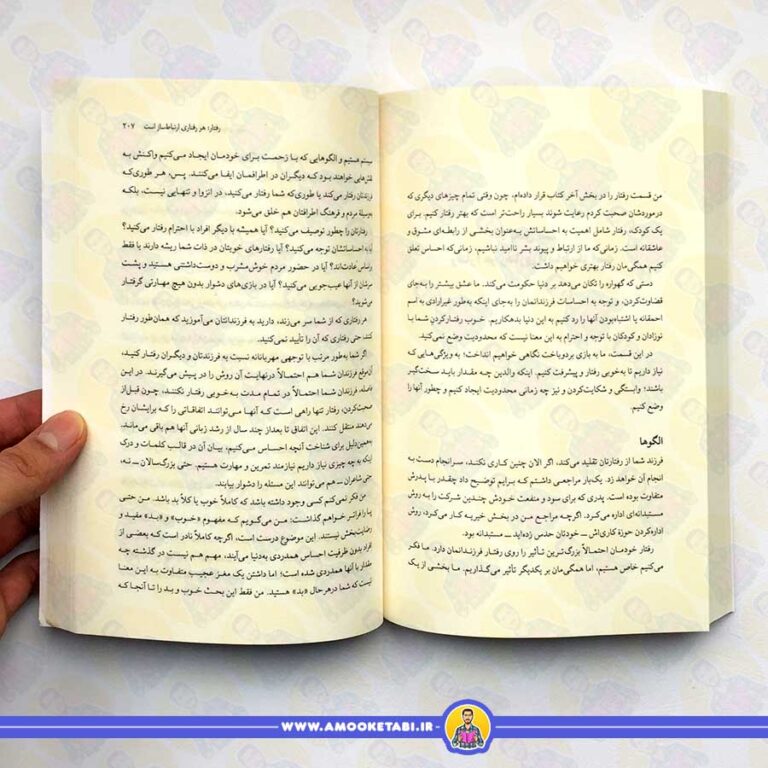 من قسمت رفتار را در بخش آخر کتاب قرار داده‌ام، چون وقتی تمام چیزهای دیگری که
درموردشان صحبت کردم رعایت شوند بسیار راحت‌تر است که بهتر رفتار کنیم. برای
یک کودک، رفتار شامل اهمیت به احساساتش به‌عنوان بخشی از رابطه‌ای مشوق و
عاشقانه است. زمانی‌که ما از ارتباط و پیوند بشر ناامید نباشیم، زمانی‌که احساس تعلق
کنیم همگی‌مان رفتار بهتری خواهیم داشت.
دستی که گهواره را تکان می‌دهد بر دنیا حکومت می‌کند. ما عشق بیشتر را به‌جای
قضاوت‌کردن، و توجه به احساسات فرزندانمان را به‌جای اینکه به‌طور غیرارادی به اسم
احمقانه یا اشتباه‌بودن آنها را رد کنیم به این دنیا بدهکاریم. خوب رفتارکردن شما با
نوزادان و کودکان با توجه و احترام به این معنا نیست که محدودیت وضع نمی‌کنید.
در این قسمت، ما به بازی بردوباخت نگاهی خواهیم انداخت؛ به ویژگی‌هایی که
نیاز داریم تا به‌خوبی رفتار و پیشرفت کنیم. اینکه والدین چه مقدار باید سخت‌گیر
باشند؛ وابستگی و شکایت‌کردن و نیز چه زمانی محدودیت ایجاد کنیم و چطور آنها را
وضع کنیم.
الگوها
فرزند شما از رفتارتان تقلید می‌کند، اگر الان چنین کاری نکند، سرانجام دست به
انجام آن خواهد زد. یک‌بار مراجعی داشتم که برایم توضیح داد چقدر با پدرش
متفاوت بوده است. پدری که برای سود و منفعت خودش چندین شرکت را به روش
مستبدانه‌ای اداره می‌کرد. اگرچه مراجع من در بخش خیریه کار می‌کرد، روش
اداره‌کردن حوزهٔ کاری‌اش ــ خودتان حدس زده‌اید ــ مستبدانه بود.
رفتار خودمان احتمالاً بزرگ‌ترین تأثیر را روی رفتار فرزندانمان دارد. ما فکر
می‌کنیم خاص هستیم، اما همگی‌مان بر یکدیگر تأثیر می‌گذاریم. ما بخشی از یک
رفتار: هر رفتاری ارتباط‌ساز است ۲۰۷
سیستم هستیم و الگوهایی که با زحمت برای خودمان ایجاد می‌کنیم واکنش به
نقش‌هایی خواهند بود که دیگران در اطرافمان ایفا می‌کنند. پس، هر طوری‌که
فرزندتان رفتار می‌کند یا طوری‌که شما رفتار می‌کنید، در انزوا و تنهایی نیست، بلکه
به‌وسیلهٔ مردم و فرهنگ اطرافتان هم خلق می‌شود.
رفتارتان را چطور توصیف می‌کنید؟ آیا همیشه با دیگر افراد با احترام رفتار می‌کنید؟
آیا به احساساتشان توجه می‌کنید؟ آیا رفتارهای خوبتان در ذات شما ریشه دارند یا فقط
براساس عادت‌اند؟ آیا در حضور مردم خوش‌مشرب و دوست‌داشتنی هستید و پشت
سرشان از آنها عیب‌جویی می‌کنید؟ آیا در بازی‌های دشوار بدون هیچ مهارتی گرفتار
می‌شوید؟
هر رفتاری که از شما سر می‌زند، دارید به فرزندانتان می‌آموزید که همان‌طور رفتار
کنند، حتی رفتاری که آن را تأیید نمی‌کنید.
اگر شما به‌طور مرتب با توجهی مهربانانه نسبت به فرزندتان و دیگران رفتار کنید،
فرزندان شما هم احتمالاً درنهایت آن روش را در پیش می‌گیرند. در این
فاصله، فرزندان شما احتمالاً در تمام مدت به خوبی رفتار نکنند، چون قبل‌از
صحبت‌کردن، رفتار تنها راهی است که آنها می‌توانند اتفاقاتی را که برایشان رخ
می‌دهند منتقل کنند. این اتفاق تا بعداز چند سال از رشد زبانی آنها هم باقی می‌ماند.
به‌همین‌دلیل برای شناخت آنچه احساس می‌کنیم، بیان آن در قالب کلمات و درک
اینکه به چه چیزی نیاز داریم نیازمند تمرین و مهارت هستیم. حتی بزرگ‌سالان ــ نه،
حتی شاعران ــ هم می‌توانند این مسئله را دشوار بیابند.
من فکر نمی‌کنم کسی وجود داشته باشد که کاملاً خوب یا کلاً بد باشد. من حتی
پا را فراتر خواهم گذاشت: من می‌گویم که مفهوم «خوب» و «بد» مفید و
رضایت‌بخش نیستند. این موضوع درست است، اگرچه کاملاً نادر است که بعضی از
افراد بدون ظرفیت احساس همدردی به‌دنیا می‌آیند، مهم هم نیست در گذشته چه
مقدار با آنها همدردی شده است؛ اما داشتن یک مغز عجیب متفاوت به این معنا
نیست که شما درهرحال «بد» هستید. من فقط این بحث خوب و بد را تا آنجا که
WWW.AMOOKETABI.IR